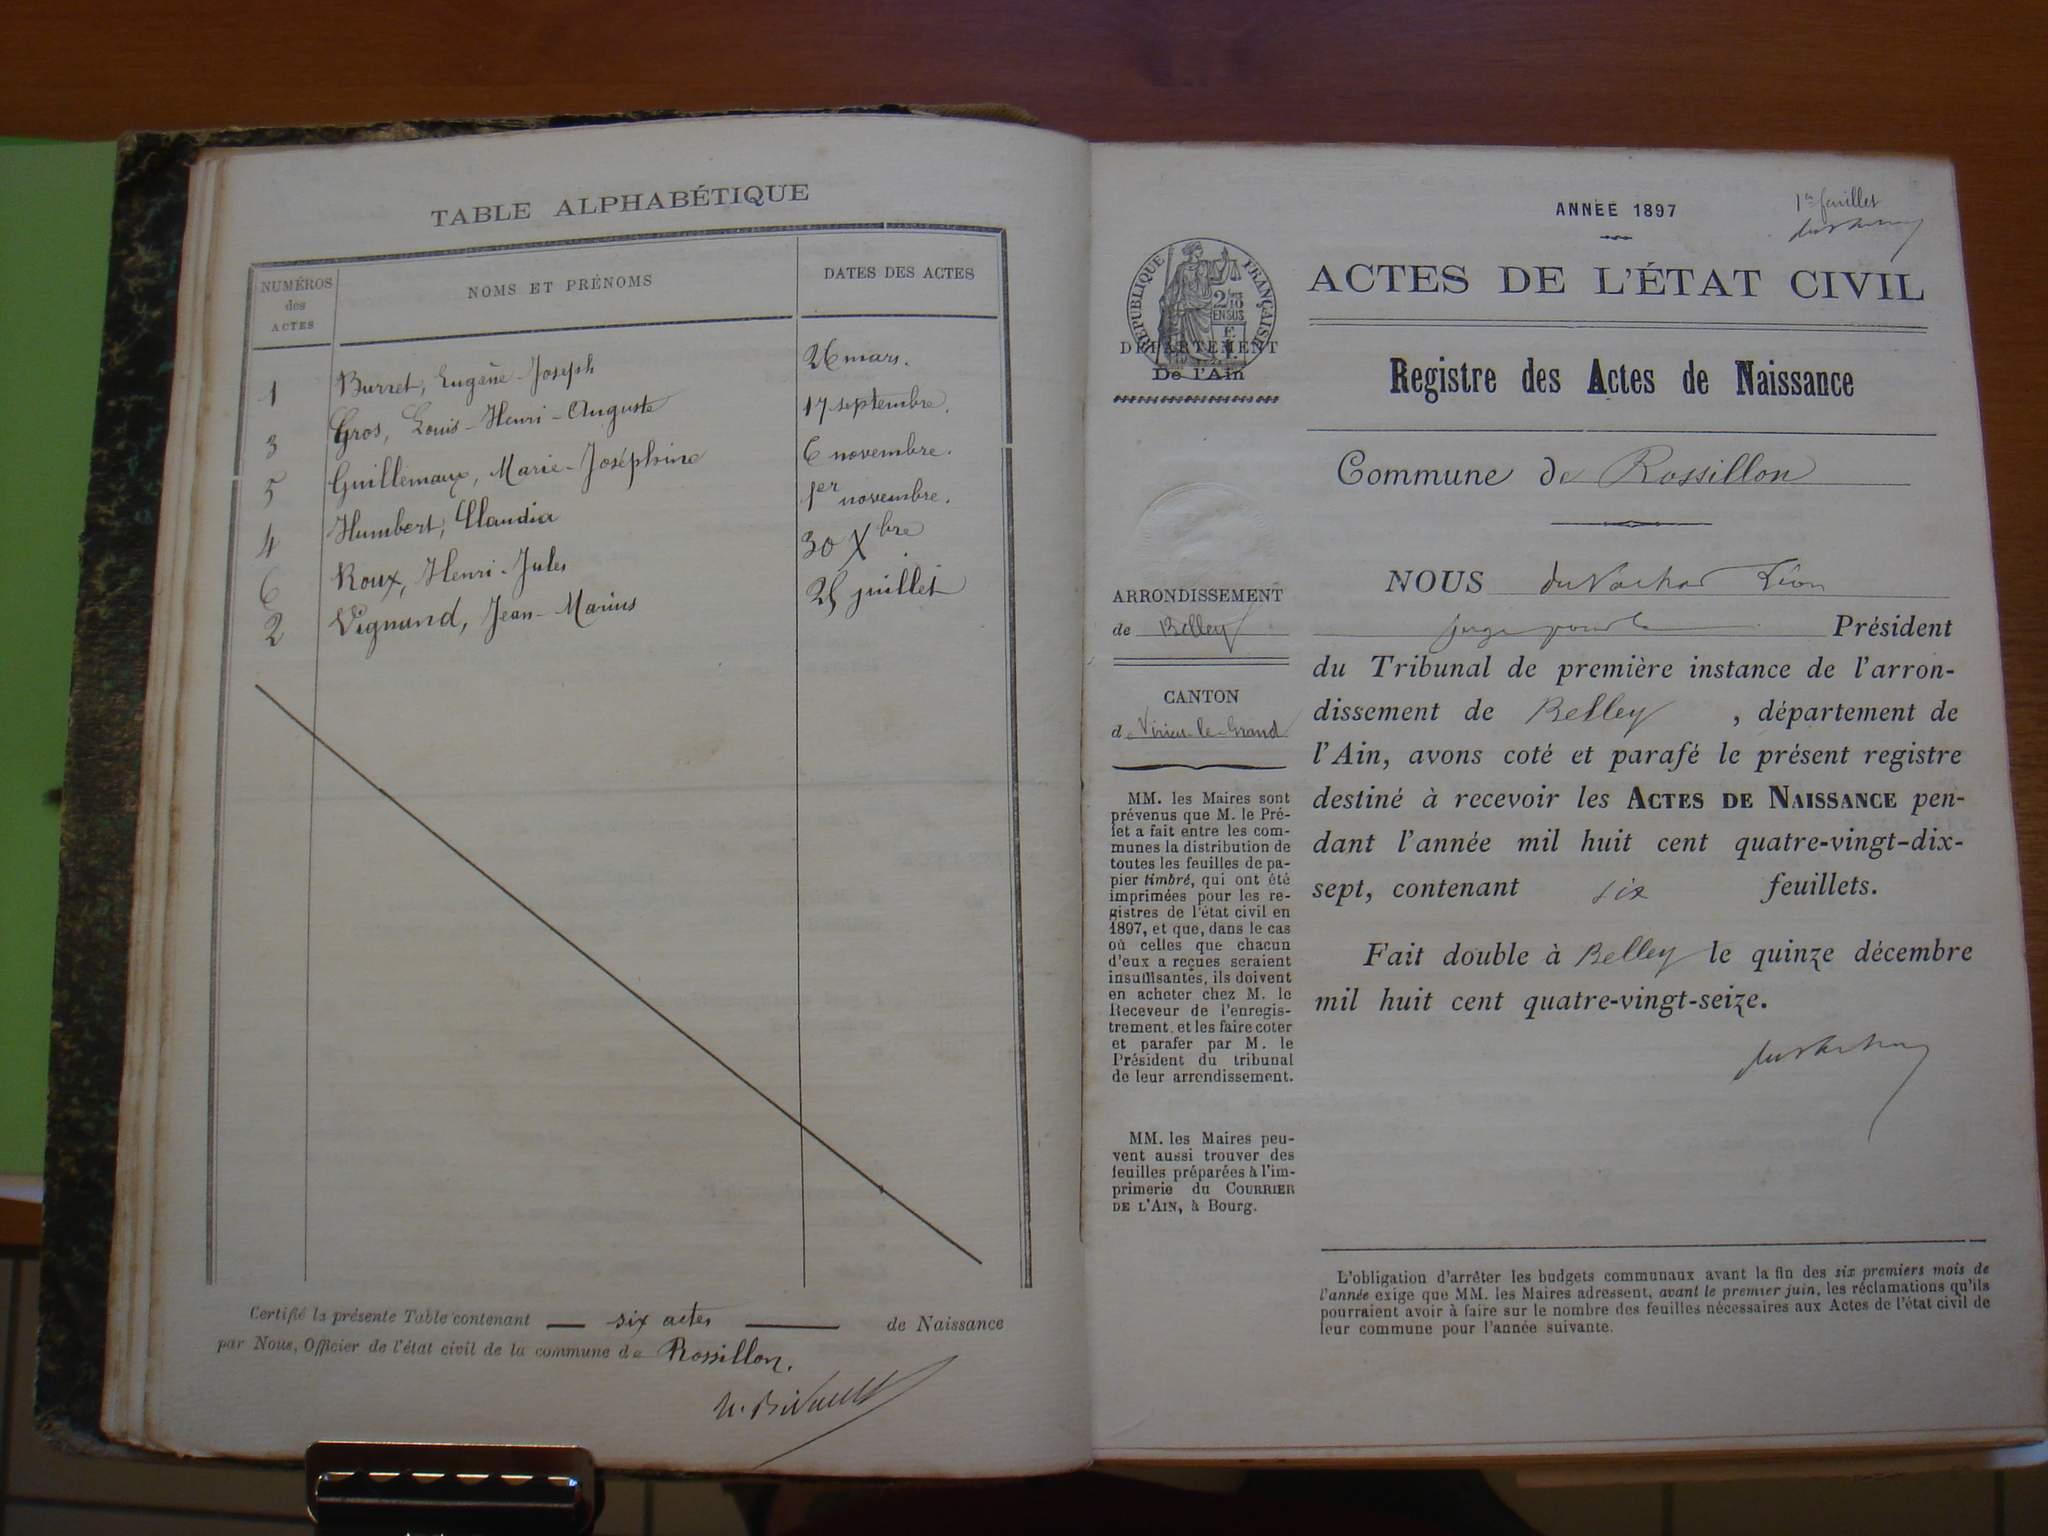 TABLE ALPHABÉTIQUE
NUMÉROS des ACTES
NOMS ET PRÉNOMS
DATES DES ACTES
1 Burret, Eugène-Joseph 26 mars.
3 Gros, Louis-Henri-Auguste 17 septembre.
5 Guillemaux, Marie-Joséphine 6 novembre.
4 Humbert, Claudia 1er novembre.
6 Roux, Henri-Jules 30 Xbre
2 Vignand, Jean-Marius 25 juillet
Certifié la présente Table contenant six actes de Naissance
par Nous, Officier de l'état civil de la commune de Rossillon.
1er feuillet
ANNÉE 1897
ACTES DE L'ÉTAT CIVIL
RÉPUBLIQUE FRANÇAISE
2/10 EN SUS
DÉPARTEMENT
De l'Ain
Registre des Actes de Naissance
Commune de Rossillon
ARRONDISSEMENT
de Belley
CANTON
de Virieu-le-Grand
MM. les Maires sont
prévenus que M. le Pré-
fet a fait entre les com-
munes la distribution de
toutes les feuilles de pa-
pier timbré, qui ont été
imprimées pour les re-
gistres de l'état civil en
1897, et que, dans le cas
où celles que chacun
d'eux a reçues seraient
insuffisantes, ils doivent
en acheter chez M. le
Receveur de l'enregis-
trement, et les faire coter
et parafer par M. le
Président du tribunal
de leur arrondissement.
MM. les Maires peu-
vent aussi trouver des
feuilles préparées à l'im-
primerie du COURRIER
DE L'AIN, à Bourg.
NOUS Léon
juge pour le Président
du Tribunal de première instance de l'arron-
dissement de Belley, département de
l'Ain, avons coté et parafé le présent registre
destiné à recevoir les ACTES DE NAISSANCE pen-
dant l'année mil huit cent quatre-vingt-dix-
sept, contenant six feuillets.
Fait double à Belley le quinze décembre
mil huit cent quatre-vingt-seize.
L'obligation d'arrêter les budgets communaux avant la fin des six premiers mois de
l'année exige que MM. les Maires adressent, avant le premier juin, les réclamations qu'ils
pourraient avoir à faire sur le nombre des feuilles nécessaires aux Actes de l'état civil de
leur commune pour l'année suivante.